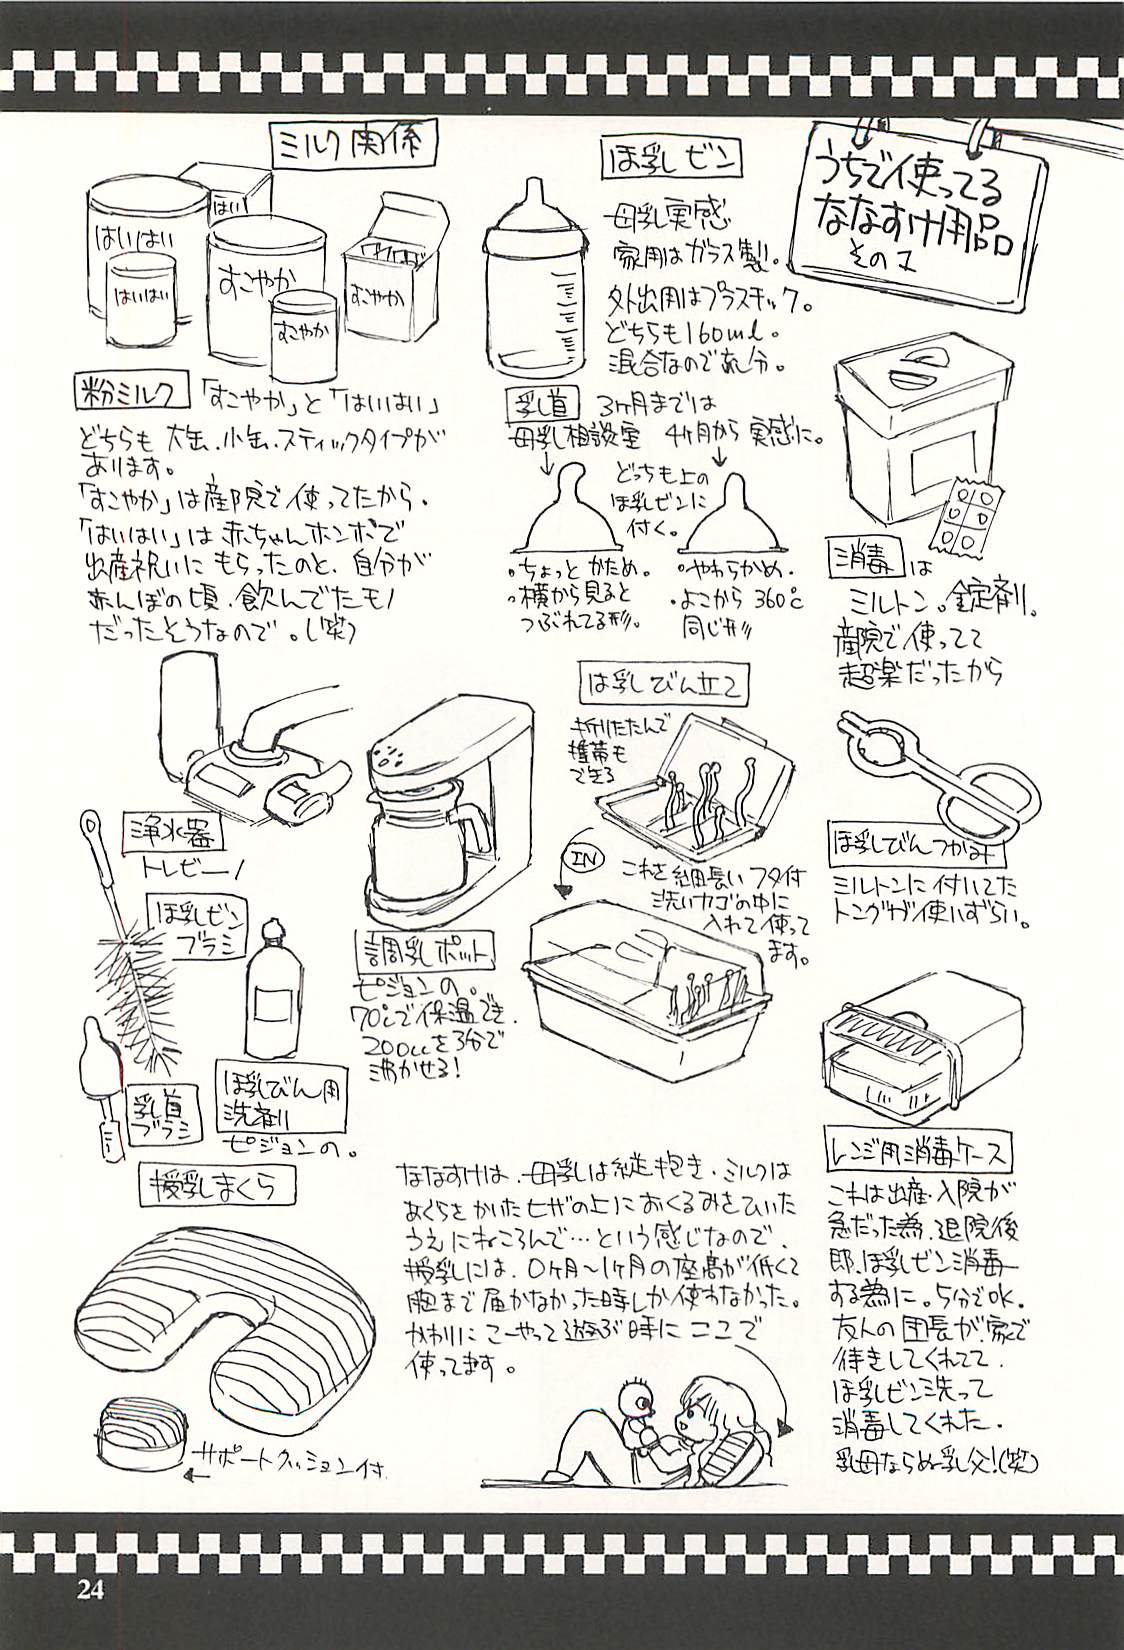 うちで使ってる
ななすけ用品
その1
ミルク関係
はい
はいはい
はいはい
すこやか
すこやか
すこやか
粉ミルク 「すこやか」と「はいはい」
どちらも 大缶.小缶.スティックタイプが
あります。
「すこやか」は産院で使ってたから.
「はいはい」は赤ちゃんホンポで
出産祝いにもらったのと、自分が
赤んぼの頃.飲んでたモノ
だったそうなので。(笑)
ほ乳ビン
母乳実感
家用はガラス製。
外出用はプラスチック。
どちらも160ml。
混合なので
乳首 3ヶ月までは
母乳相談室 4ヶ月から実感に。
どっちも上の
ほ乳ビンに
付く。
・ちょっとかため。
・横から見ると
つぶれてる形。
・やわらかめ.
・よこから360℃
同じ形
消毒は
ミルトン。錠剤。
産院で使ってて
超楽だったから
ほ乳びんつかみ
ミルトンに付いてた
トングが使いずらい。
ほ乳びん立て
折りたたんで
携帯も
できる
IN
これを細長いフタ付
洗いカゴの中に
入れて使って
ます。
浄水器
トレビーノ
ほ乳ビン
ブラシ
乳首
ブラシ
ほ乳びん用
洗剤
ピジョンの。
調乳ポット
ピジョンの。
70℃で保温でき.
200ccを3分で
沸かせる!
レンジ用消毒ケース
これは出産・入院が
急だった為.退院後
即.ほ乳ビン消毒
する為に。5分でOK.
友人の団長が家で
待きしてくれてて.
ほ乳ビン洗って
消毒してくれた.
乳母ならぬ乳父!(笑)
授乳まくら
サポートクッション付
ななすけは.母乳は縦抱き.ミルクは
あぐらをかいたヒザの上におくるみをひいた
うえにねころんで…という感じなので.
授乳には.0ヶ月〜1ヶ月の座高が低くて
胸まで届かなかった時しか使わなかった。
かわりにこーやって遊ぶ時にここで
使ってます。
24